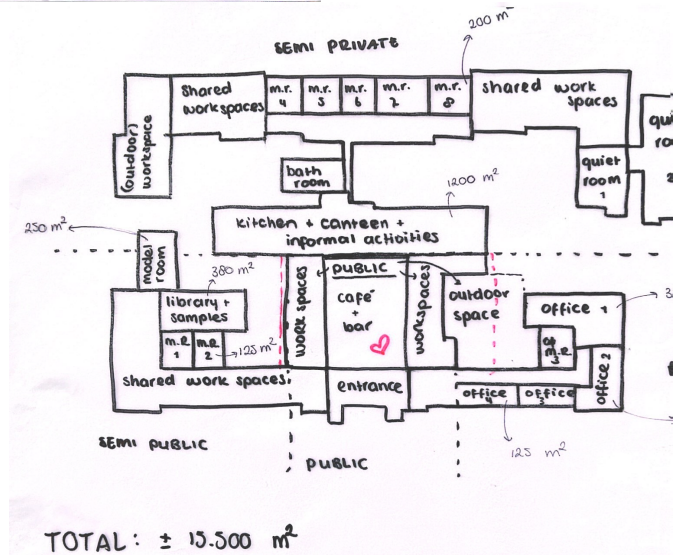 200 m²
SEMI PRIVATE
Shared
workspaces
m.r.
4
m.r.
5
m.r.
6
m.r.
7
m.r.
8
shared work
spaces
(outdoor)
workspace
quiet
room
1
qui
ro
2
bath
room
1200 m²
kitchen + canteen +
informal activities
250 m²
model
room
380 m²
library +
samples
m.r.
1
m.r.
2
125 m²
shared work spaces
work spaces
PUBLIC
café
+
bar
workspaces
outdoor
space
office 1
3
m.r.
3
office 2
entrance
office
4
office
3
125 m²
SEMI PUBLIC
PUBLIC
TOTAL: ± 15.500 m²